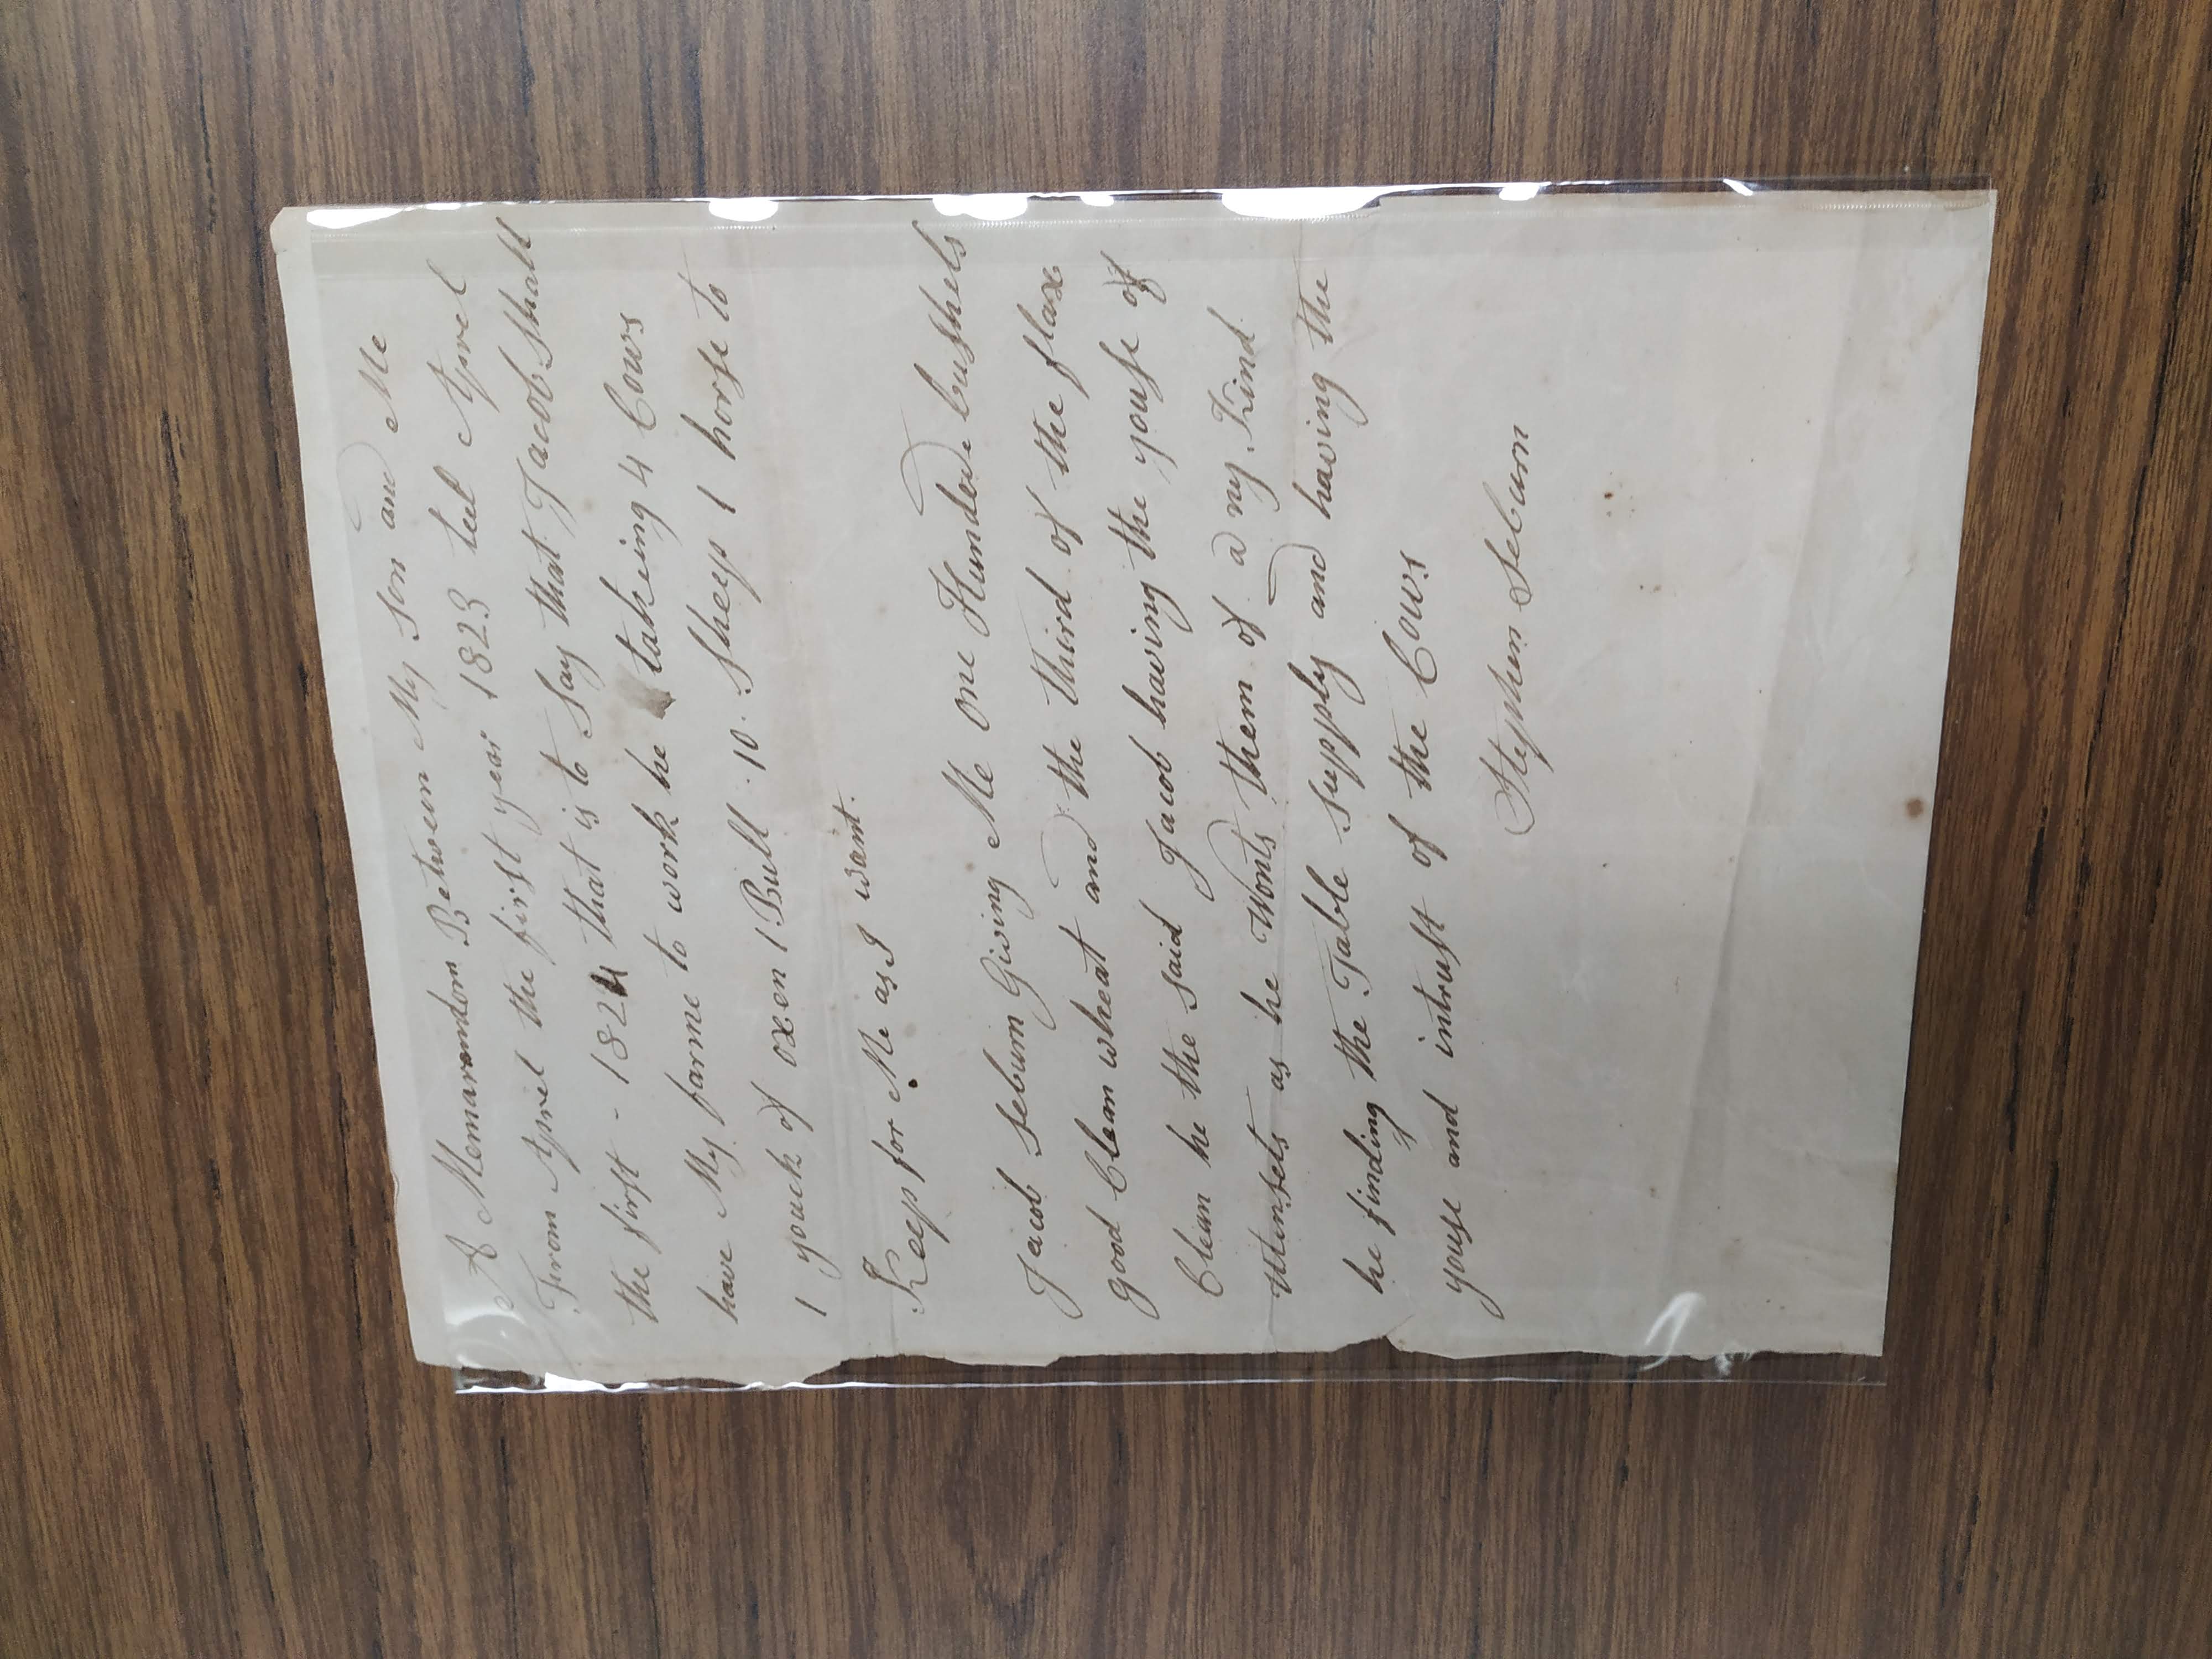 A Memarandom Between My son and Me
From Aprel the first year 1823 teel Aprel
the first - 1824 that is to Say that Jacob shall
have My farme to work he takeing 4 Cows
1 youck of oxen 1 Bull 10 sheep 1 horse to
Keep for Me as I want.
Jacob seburn Giving Me one Hundred bushels
good Clean wheat and the third of the flax
Clean he the said Jacob having the youse of
utensels as he Wonts them of a ny Kind
he finding the Table supply and having the
youse and intrust of the Cows
Stephen Seburn